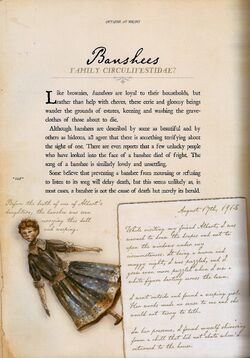 Banshees
FAMILY: CIRCULIFESTIDAE?
Like brownies, banshees are loyal to their households, but
rather than help with chores, these eerie and gloomy beings
wander the grounds of estates, keening and washing the grave-
clothes of those about to die.
Although banshees are described by some as beautiful and by
others as hideous, all agree that there is something terrifying about
the sight of one. There are even reports that a few unlucky people
who have looked into the face of a banshee died of fright. The
song of a banshee is similarly lovely and unsettling.
Some believe that preventing a banshee from mourning or refusing
to listen to its song will delay death, but this seems unlikely as, in
most cases, a banshee is not the cause of death but merely its herald.
Before the birth of one of Albert's
daughters, the banshee was seen
carrying this doll
and weeping.
August 17th, 1915
While visiting my friend Albert, I was
around to
close the windows under any
circumstances. It being a warm and
muggy night, I was puzzled, and I
grew even more puzzled when I saw a
white figure darting across the lawn.
I went outside and found a weeping girl
whose words made no sense to me and who
would not terry to talk.
In her presence, I found myself shivering
from a chill that did not abate when I
returned to the house.